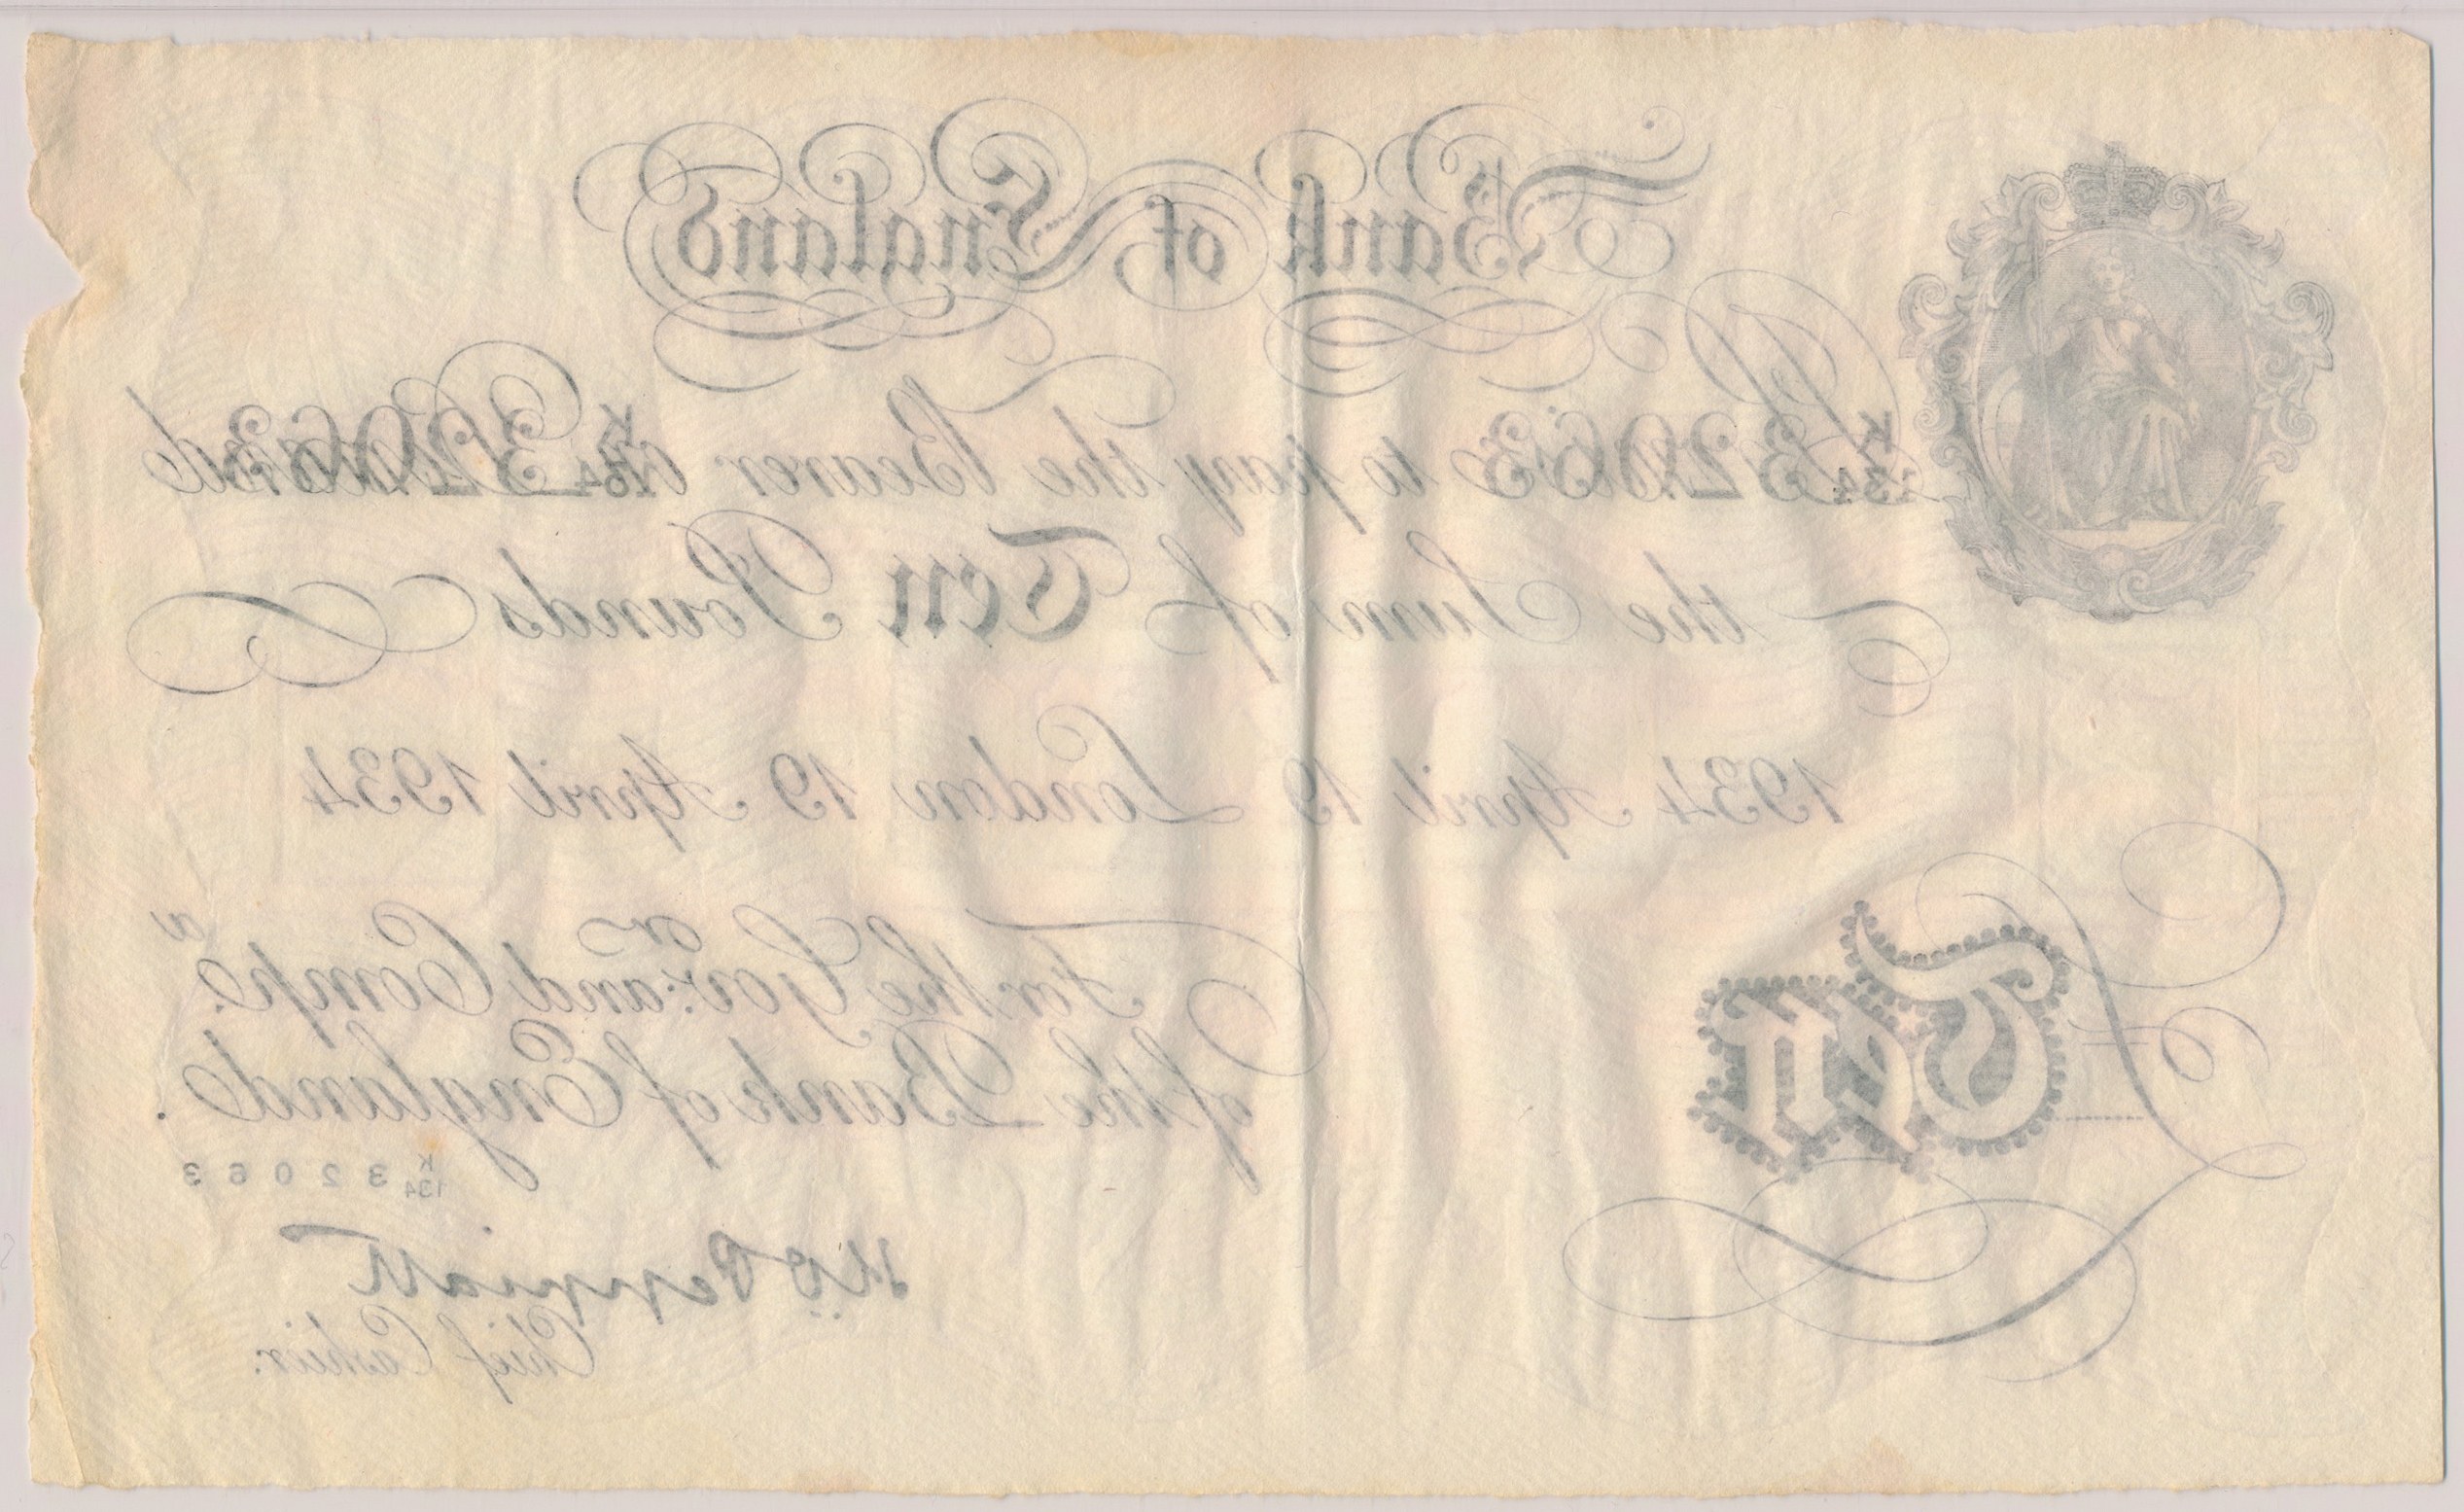 Bank of England
K/134 32063 Promise to pay the Bearer on Demand K/134 32063
the Sum of Ten Pounds
1934 April 19 London 19 April 1934
For the Govr: and Compa.
of the Bank of England.
£ Ten
K/134 32063
K.O. Peppiatt
Chief Cashier.